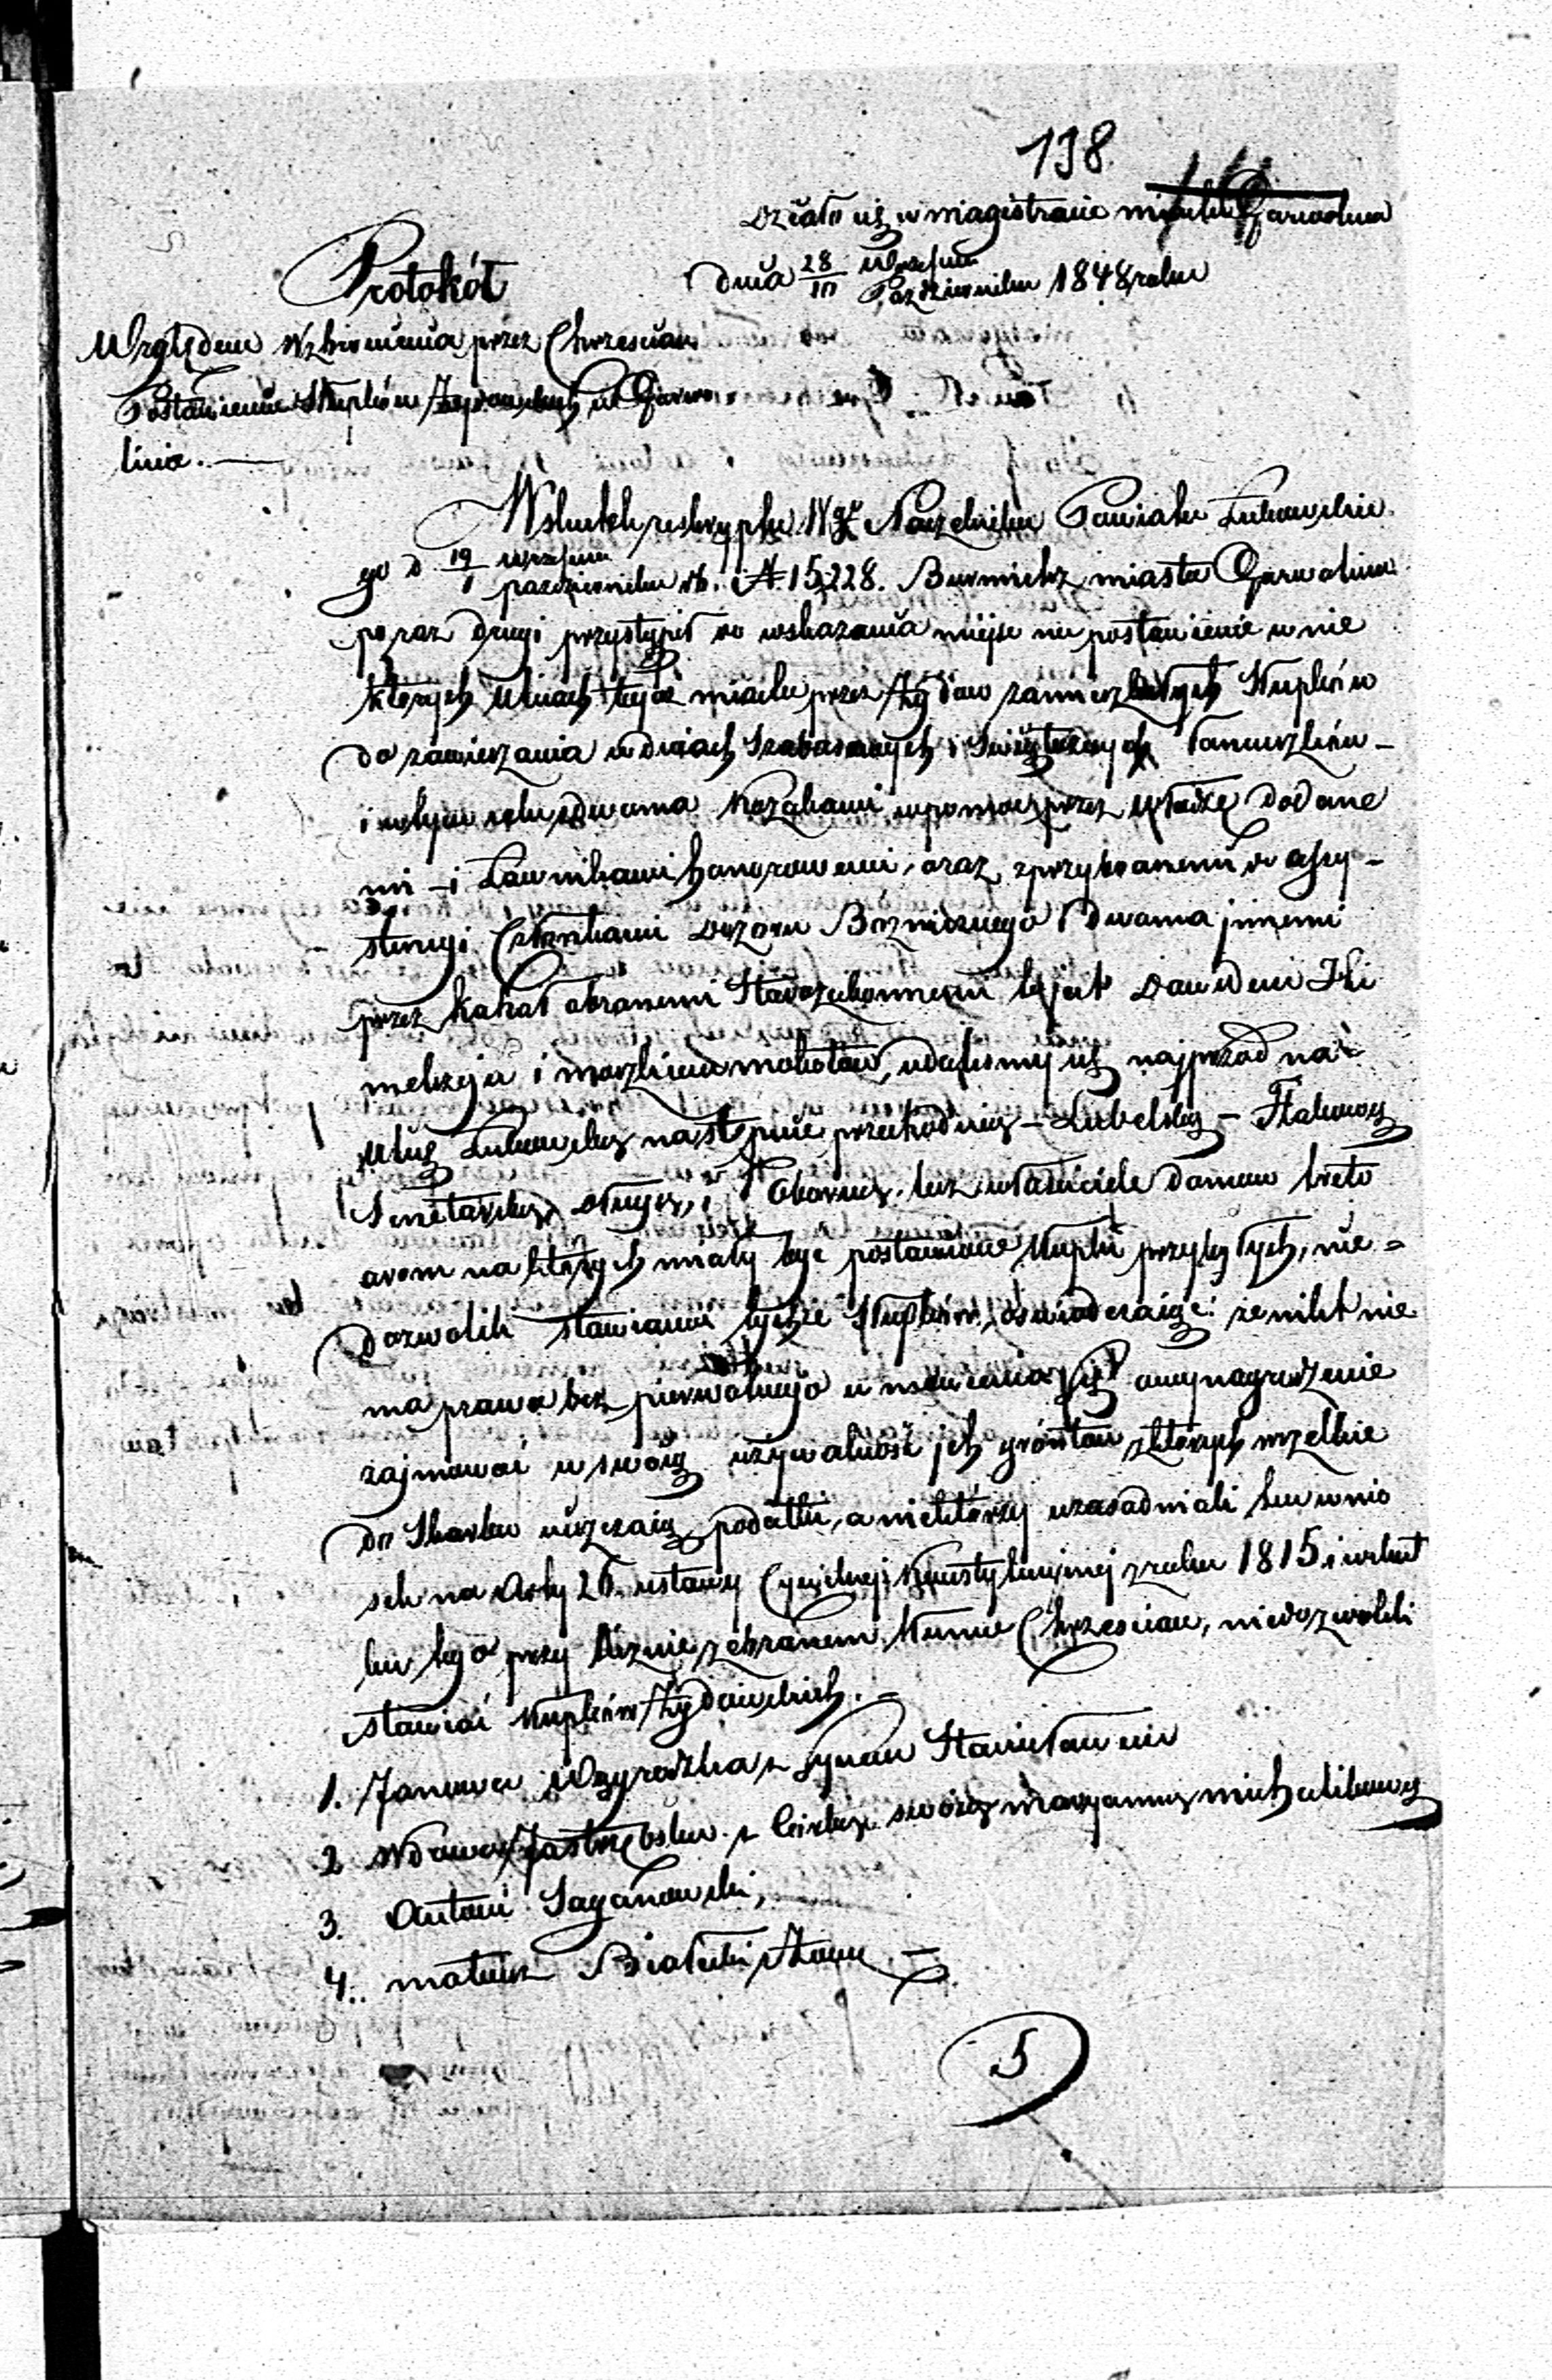 138
Działo się w magistracie miasta Garwolina
dnia 28/10 Września/Października 1848 roku
Protokół
Względem Wzbronienia przez Chrześcian
Postawienia Słupków Żydowskich w Garwo
linie. —
Wskutek reskryptu Wgo Naczelnika Powiatu Łukowskie
go d 19/1 września/października rb. i N. 15,228. Burmistrz miasta Garwolina
po raz drugi przystąpił do wskazania miejsc na postawienie w nie
których Ulicach tegoż miasta przez Żydów zamierzonych Słupków
do zawieszania w dniach Szabasowych i Świątecznych Sznurków —
i w tym celu z dwoma Kozakami w pomoc przez władzę dodane
mi — i Ławnikami honorowemi, oraz z przybranemi w assy-
stencyi Członkami Dozoru Bożniczego i dwoma innemi
przez Kahał obranemi Starozakonnemi to jest Dawidem
i mokotów, udaliśmy się najprzód na
Ulicę Łukowską następnie przechodnią — Lubelską — Stakową
Senatorską, długą, i Oborną, lecz właściciele domów
na których miały być postawione Słupki przyległych, nie-
dozwolili stawiania tychże Słupków, oświadczając: że nikt nie
ma prawa bez pierwotnego umówienia się o wynagrodzenie
zajmować w swoią używalność jch gróntów, z których wszelkie
do Skarbu uiszczaią podatki, a niektórzy uzasadniali swe wnio
ski na Arty 26. ustawy Cywilnej Konstytucyjnej z roku 1815 i wskut
ku tego przy licznie zebranem tłumie Chrześcian, niedozwolili
stawiać słupków Żydowskich. —
1. Janowa Wągrodzka z Synem Stanisławem
2 Wdowa Jastrzębska z Córką swoią Maryanną Michalikową
3. Antoni Saganowski,
4. Mateusz Białecki, Żona —
5